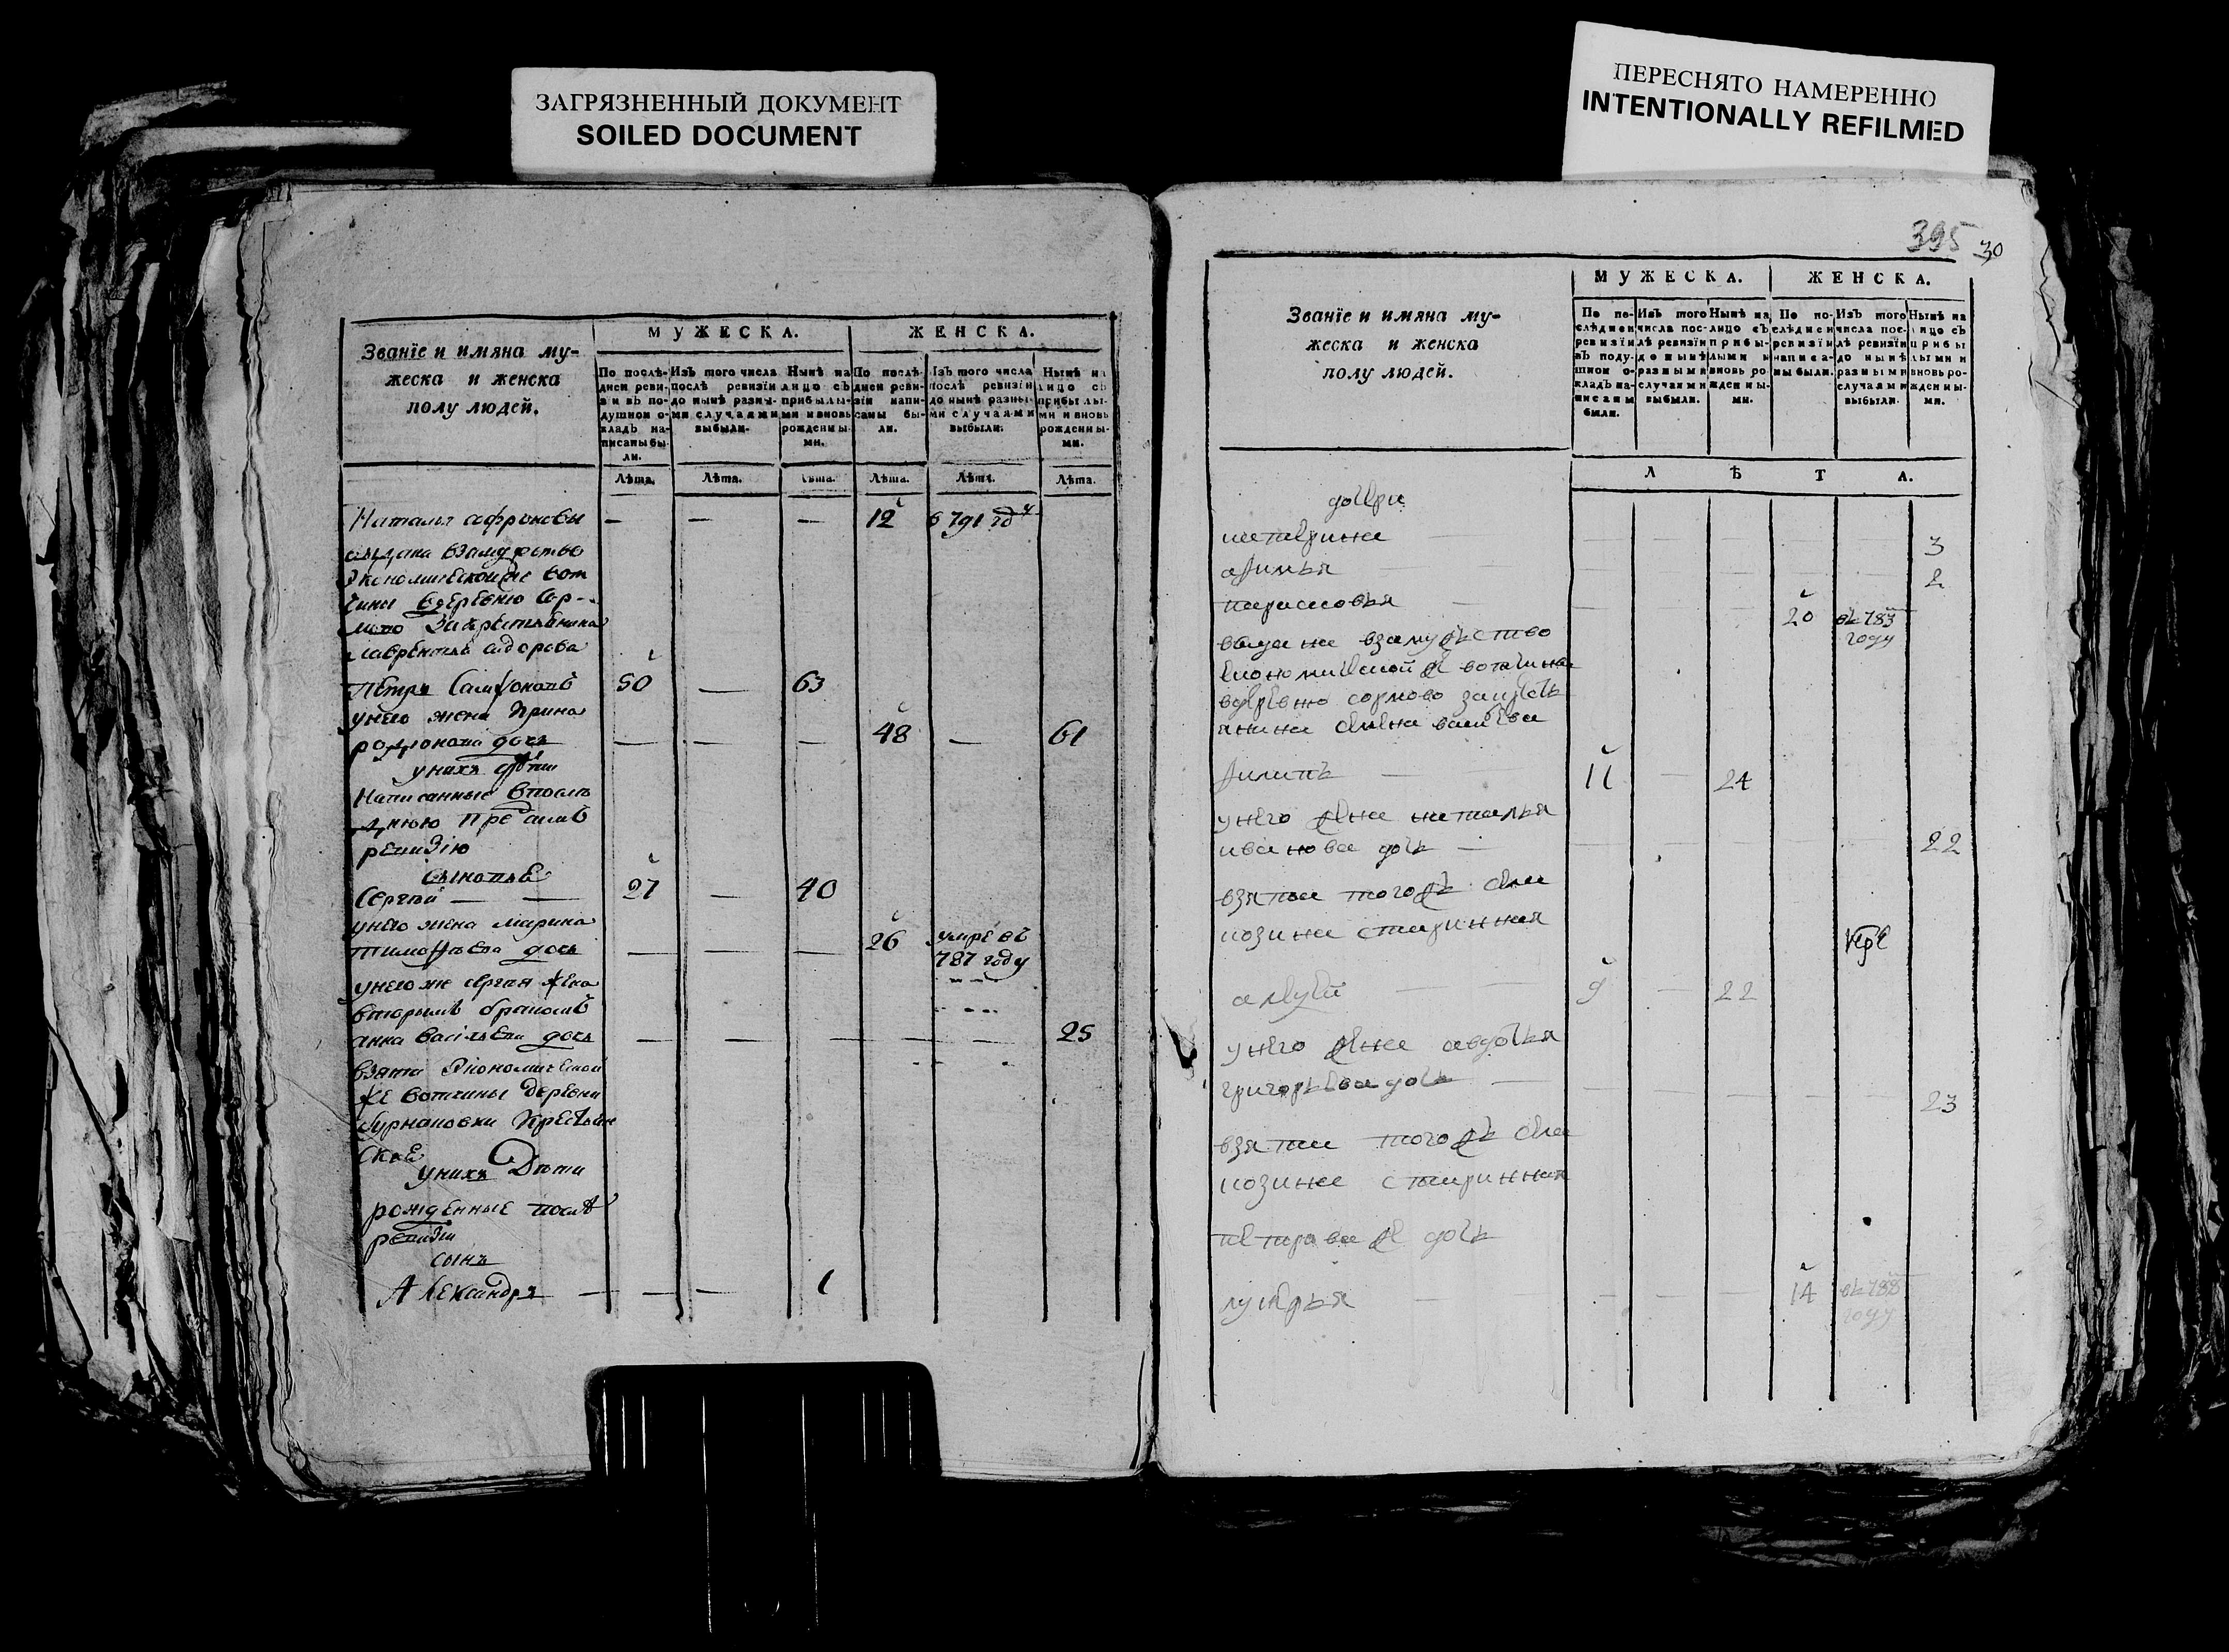 ЗАГРЯЗНЕННЫЙ ДОКУМЕНТ
SOILED DOCUMENT
ПЕРЕСНЯТО НАМЕРЕННО
INTENTIONALLY REFILMED
Званїе и имяна му-
жеска и женска
полу людей.
МУЖЕСКА.
ЖЕНСКА.
По послѣ-
дней реви-
зїи въ по-
душном о-
кладѣ на-
писаны бы-
ли.
Изъ того числа
послѣ ревизїи
до нынѣ разны-
ми случаями
выбыли.
Нынѣ на
лицо съ
прибылы-
ми и вновь
рожденны-
ми.
По послѣ-
дней реви-
зїи напи-
саны бы-
ли.
Изъ того числа
послѣ ревизїи
до нынѣ разны-
ми случаями
выбыли.
Нынѣ на
лицо съ
прибылы-
ми и вновь
рожденны-
ми.
Лѣта. Лѣта. Лѣта. Лѣта. Лѣта. Лѣта.
Наталья софронова — — — 12 в 791 году
выдана взамужство
экономической же вот
чины вдеревню Сор-
мово за крестьянина
лаврентья сидорова
Петръ 50 — 63
унего жена Ирина
родионова дочь — — — 48 — 61
унихъ дѣти
написанные впослѣ
днюю пред симъ
ревизїю
сыновья
Сергѣй — — 27 — 40
унего жена марина
тимофѣева дочь — — — 26 умре въ
787 году
унего же сергея жена
вторымъ бракомъ
анна васильева дочь — — — — — 25
взята Экономической
же вотчины деревни
бурнаковки крестьян
ская
унихъ Дѣти
рожденные послѣ
ревизїи
сынъ
Александръ — — — 1
395 30
Званїе и имяна му-
жеска и женска
полу людей.
МУЖЕСКА.
ЖЕНСКА.
По по-
слѣдней
ревизїи
въ поду-
шном о-
кладѣ на-
писаны
были.
Изъ того
числа пос-
лѣ ревизїи
до нынѣ
разными
случаями
выбыли.
Нынѣ на
лицо съ
прибы-
лыми и
вновь ро-
жденны-
ми.
По по-
слѣдней
ревизїи
написа-
ны были.
Изъ того
числа пос-
лѣ ревизїи
до нынѣ
разными
случаями
выбыли.
Нынѣ на
лицо съ
прибы-
лыми и
вновь ро-
жденны-
ми.
ЛѢТА.
дочери
катерина — — — — — 3
афимья — — — — — 2
парасковья — — 20 въ 783
году
выдана взамужъство
економической же вотчины
вдеревню сормово закресть
янина семена васильева
филипъ — 11 — 24
унего жена наталья
иванова дочь — — — — 22
взята тогожъ села
козина старинная
алексей — 9 — 22
унего жена авдотья
григорьева дочь — — — — — 23
взята тогожъ села
козина старинная
петрова же дочь
лукерья — — — — 14 въ 788
году